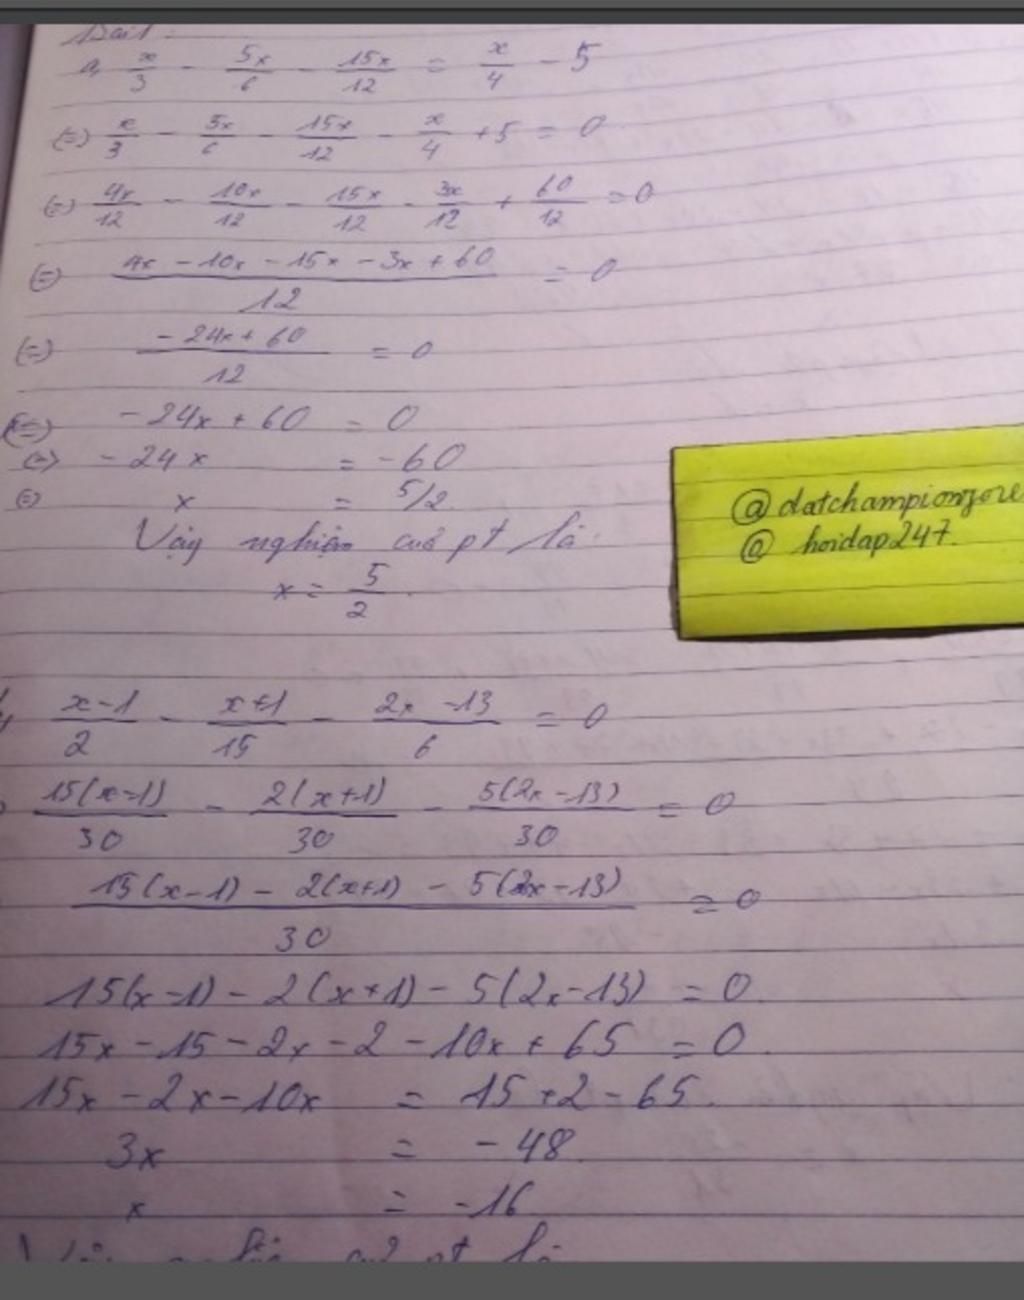 Bài 1:
a, x/3 - 5x/6 - 15x/12 = x/4 - 5
(=) x/3 - 5x/6 - 15x/12 - x/4 + 5 = 0
(=) 4x/12 - 10x/12 - 15x/12 - 3x/12 + 60/12 = 0
(=) (4x - 10x - 15x - 3x + 60)/12 = 0
(=) (-24x + 60)/12 = 0
(=) -24x + 60 = 0
(=) -24x = -60
(=) x = 5/2
Vậy nghiệm của pt là:
x = 5/2.
@datchampion
@ hoidap247.
(x-1)/2 - (x+1)/15 - (2x-13)/6 = 0
15(x-1)/30 - 2(x+1)/30 - 5(2x-13)/30 = 0
(15(x-1) - 2(x+1) - 5(2x-13))/30 = 0
15(x-1) - 2(x+1) - 5(2x-13) = 0
15x - 15 - 2x - 2 - 10x + 65 = 0.
15x - 2x - 10x = 15 + 2 - 65.
3x = -48
x = -16